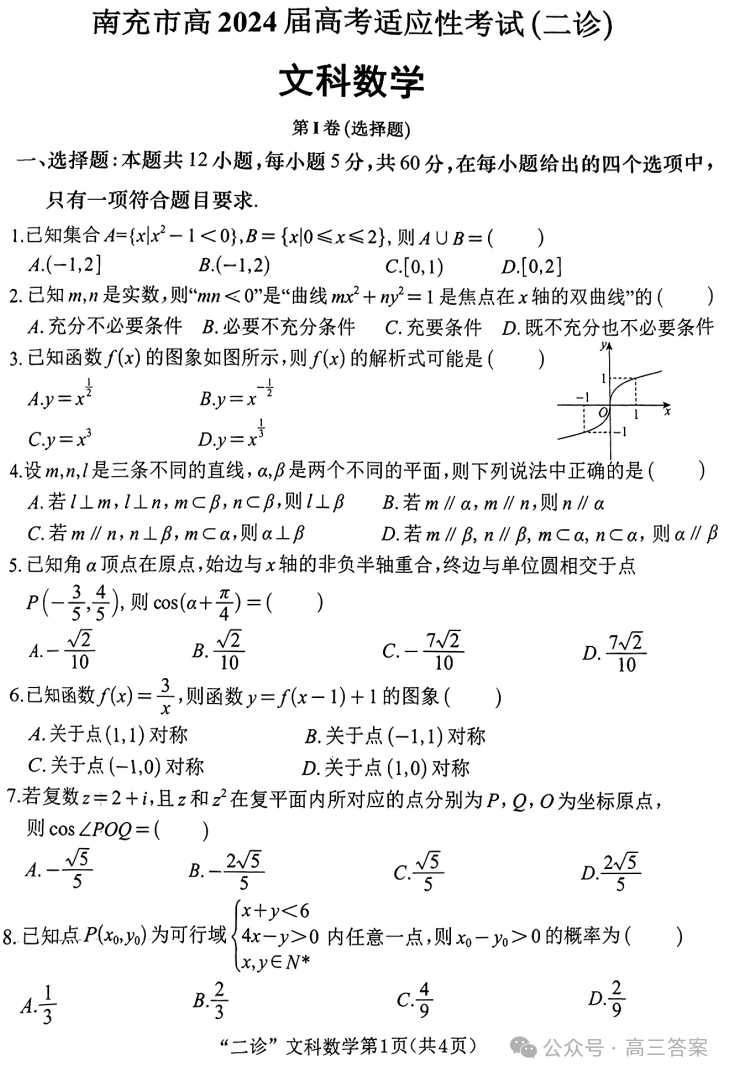 南充市高2024届高考适应性考试(二诊)
文科数学
第Ⅰ卷(选择题)
一、选择题:本题共12小题,每小题5分,共60分,在每小题给出的四个选项中,
只有一项符合题目要求.
1.已知集合A={x|x²-1<0},B={x|0≤x≤2},则A∪B=( )
A.(-1,2] B.(-1,2) C.[0,1) D.[0,2]
2.已知m,n是实数,则“mn<0”是“曲线mx²+ny²=1是焦点在x轴的双曲线”的( )
A.充分不必要条件 B.必要不充分条件 C.充要条件 D.既不充分也不必要条件
3.已知函数f(x)的图象如图所示,则f(x)的解析式可能是( )
A.y=x^{1/2} B.y=x^{-1/2}
C.y=x³ D.y=x^{1/3}
y
1
-1
O
1
x
-1
4.设m,n,l是三条不同的直线,α,β是两个不同的平面,则下列说法中正确的是( )
A.若l⊥m,l⊥n,m⊂β,n⊂β,则l⊥β B.若m∥α,m∥n,则n∥α
C.若m∥n,n⊥β,m⊂α,则α⊥β D.若m∥β,n∥β,m⊂α,n⊂α,则α∥β
5.已知角α顶点在原点,始边与x轴的非负半轴重合,终边与单位圆相交于点
P(-3/5,4/5),则cos(α+π/4)=( )
A.-√2/10 B.√2/10 C.-7√2/10 D.7√2/10
6.已知函数f(x)=3/x,则函数y=f(x-1)+1的图象( )
A.关于点(1,1)对称 B.关于点(-1,1)对称
C.关于点(-1,0)对称 D.关于点(1,0)对称
7.若复数z=2+i,且z和z²在复平面内所对应的点分别为P,Q,O为坐标原点,
则cos∠POQ=( )
A.-√5/5 B.-2√5/5 C.√5/5 D.2√5/5
8.已知点P(x₀,y₀)为可行域{x+y<6
4x-y>0 内任意一点,则x₀-y₀>0的概率为( )
x,y∈N*
A.1/3 B.2/3 C.4/9 D.2/9
“二诊”文科数学第1页(共4页)
公众号·高三答案